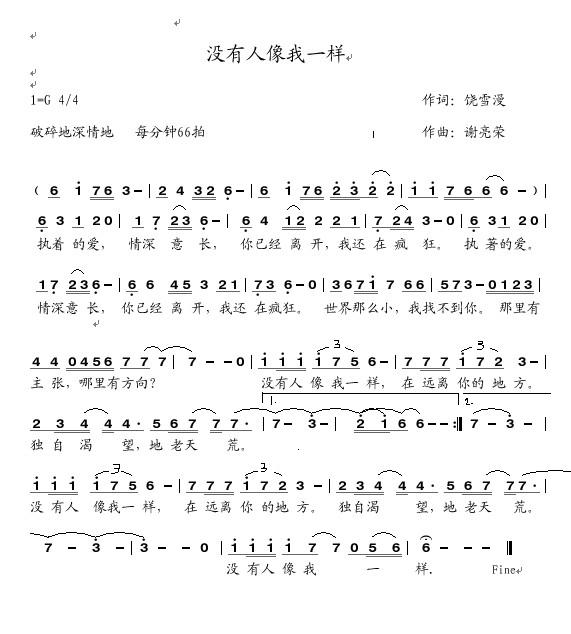 没有人像我一样
1=G 4/4 作词：饶雪漫
破碎地深情地 每分钟66拍 作曲：谢亮荣
（ 6 1 76 3- | 2 4 32 6- | 6 1 76 2 3 2 2 | 1 1 7 6 6 6 - ）|
6 3 1 20 | 1 7 23 6- | 6 4 12 2 2 1 | 7 24 3-0 | 6 31 20 |
执着的爱， 情深 意 长， 你已经 离 开，我还 在 疯 狂。 执 著的爱。
17 236- | 6 6 45 3 21 | 73 6-0 | 3671 7 66 | 573-0123 |
情深意 长， 你已经 离 开，我还 在疯狂。 世界那么小，我找不到你。 那里有
4 4 0456 7 7 7 | 7 - - 0 | 1 1 1 1 7 5 6- | 7 7 7 1 7 2 3- |
3 3
主 张，哪里有方向？ 没有人 像 我一 样， 在 远离 你的 地 方。
1. 2.
2 3 4 4 4 4· 5 6 7 7 7· | 7- 3- | 2 1 6 6 - - :‖ 7 - 3 - |
独 自 渴 望，地 老天 荒。
3 3
1 1 1 1 7 5 6 - | 7 7 7 1 7 2 3 - | 2 3 4 4 4 4· 5 6 7 7 7· |
没 有人 像我一 样， 在 远离 你 的地 方。 独自渴 望，地 老天 荒。
7 - 3 - | 3 - - 0 | 1 1 1 1 7 7 0 5 6 | 6 - - ‖
没 有人 像 我 一 样. Fine